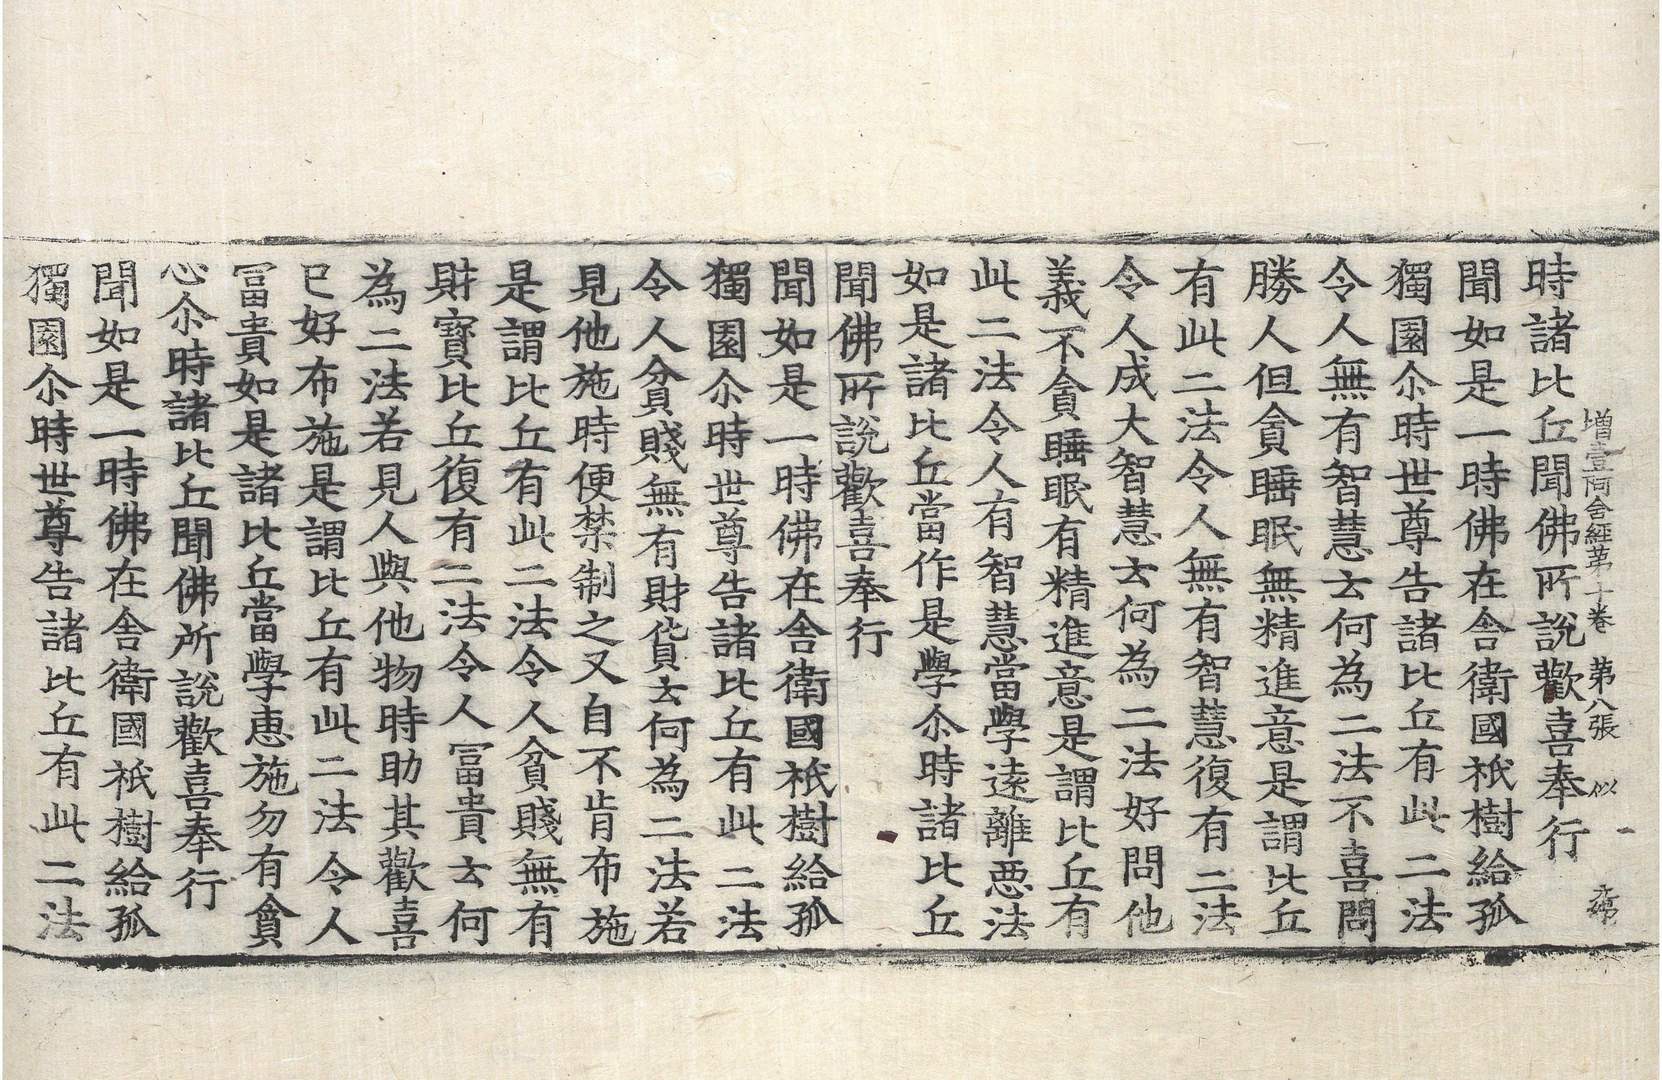 增壹阿含經第十卷　第八張　似
時諸比丘聞佛所說歡喜奉行
聞如是一時佛在舍衛國祇樹給孤
獨園尒時世尊告諸比丘有此二法
令人無有智慧云何為二法不喜問
勝人但貪睡眠無精進意是謂比丘
有此二法令人無有智慧復有二法
令人成大智慧云何為二法好問他
義不貪睡眠有精進意是謂比丘有
此二法令人有智慧當學遠離惡法
如是諸比丘當作是學尒時諸比丘
聞佛所說歡喜奉行
聞如是一時佛在舍衛國祇樹給孤
獨園尒時世尊告諸比丘有此二法
令人貧賤無有財貨云何為二法若
見他施時便禁制之又自不肯布施
是謂比丘有此二法令人貧賤無有
財寶比丘復有二法令人冨貴云何
為二法若見人與他物時助其歡喜
已好布施是謂比丘有此二法令人
冨貴如是諸比丘當學惠施勿有貪
心尒時諸比丘聞佛所說歡喜奉行
聞如是一時佛在舍衛國祇樹給孤
獨園尒時世尊告諸比丘有此二法